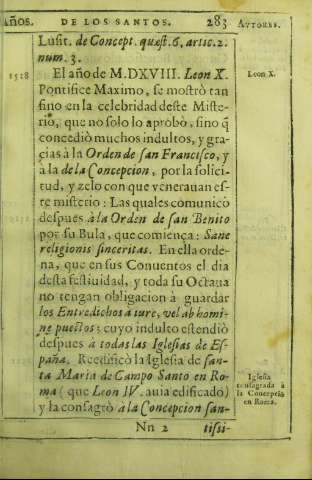 Años. DE LOS SANTOS. 283 AVTORES.
Lusit. de Concept. quæst. 6. artic. 2.
num. 3.
1518 El año de M.DXVIII. Leon X. Leon X.
Pontifice Maximo, se mostrò tan
fino en la celebridad deste Miste-
rio, que no solo lo aprobò, sino q̃
concediò muchos indultos, y gra-
cias à la Orden de san Francisco, y
à la de la Concepcion, por la solici-
tud, y zelo con que venerauan es-
te misterio: Las quales comunicò
despues à la Orden de san Benito
por su Bula, que comiença: Sane
religionis sinceritas. En ella orde-
na, que en sus Conuentos el dia
desta festiuidad, y toda su Octaua
no tengan obligacion à guardar
los Entredichos à iure, vel ab homi-
ne puestos: cuyo indulto estendiò
despues à todas las Iglesias de Es-
paña. Reedificò la Iglesia de san-
ta Maria de Campo Santo en Ro-
ma (que Leon IV. auia edificado)
y la consagrò à la Concepcion san-
Iglesia
consagrada à
la Concepciõ
en Roma.
Nn 2 tissi-